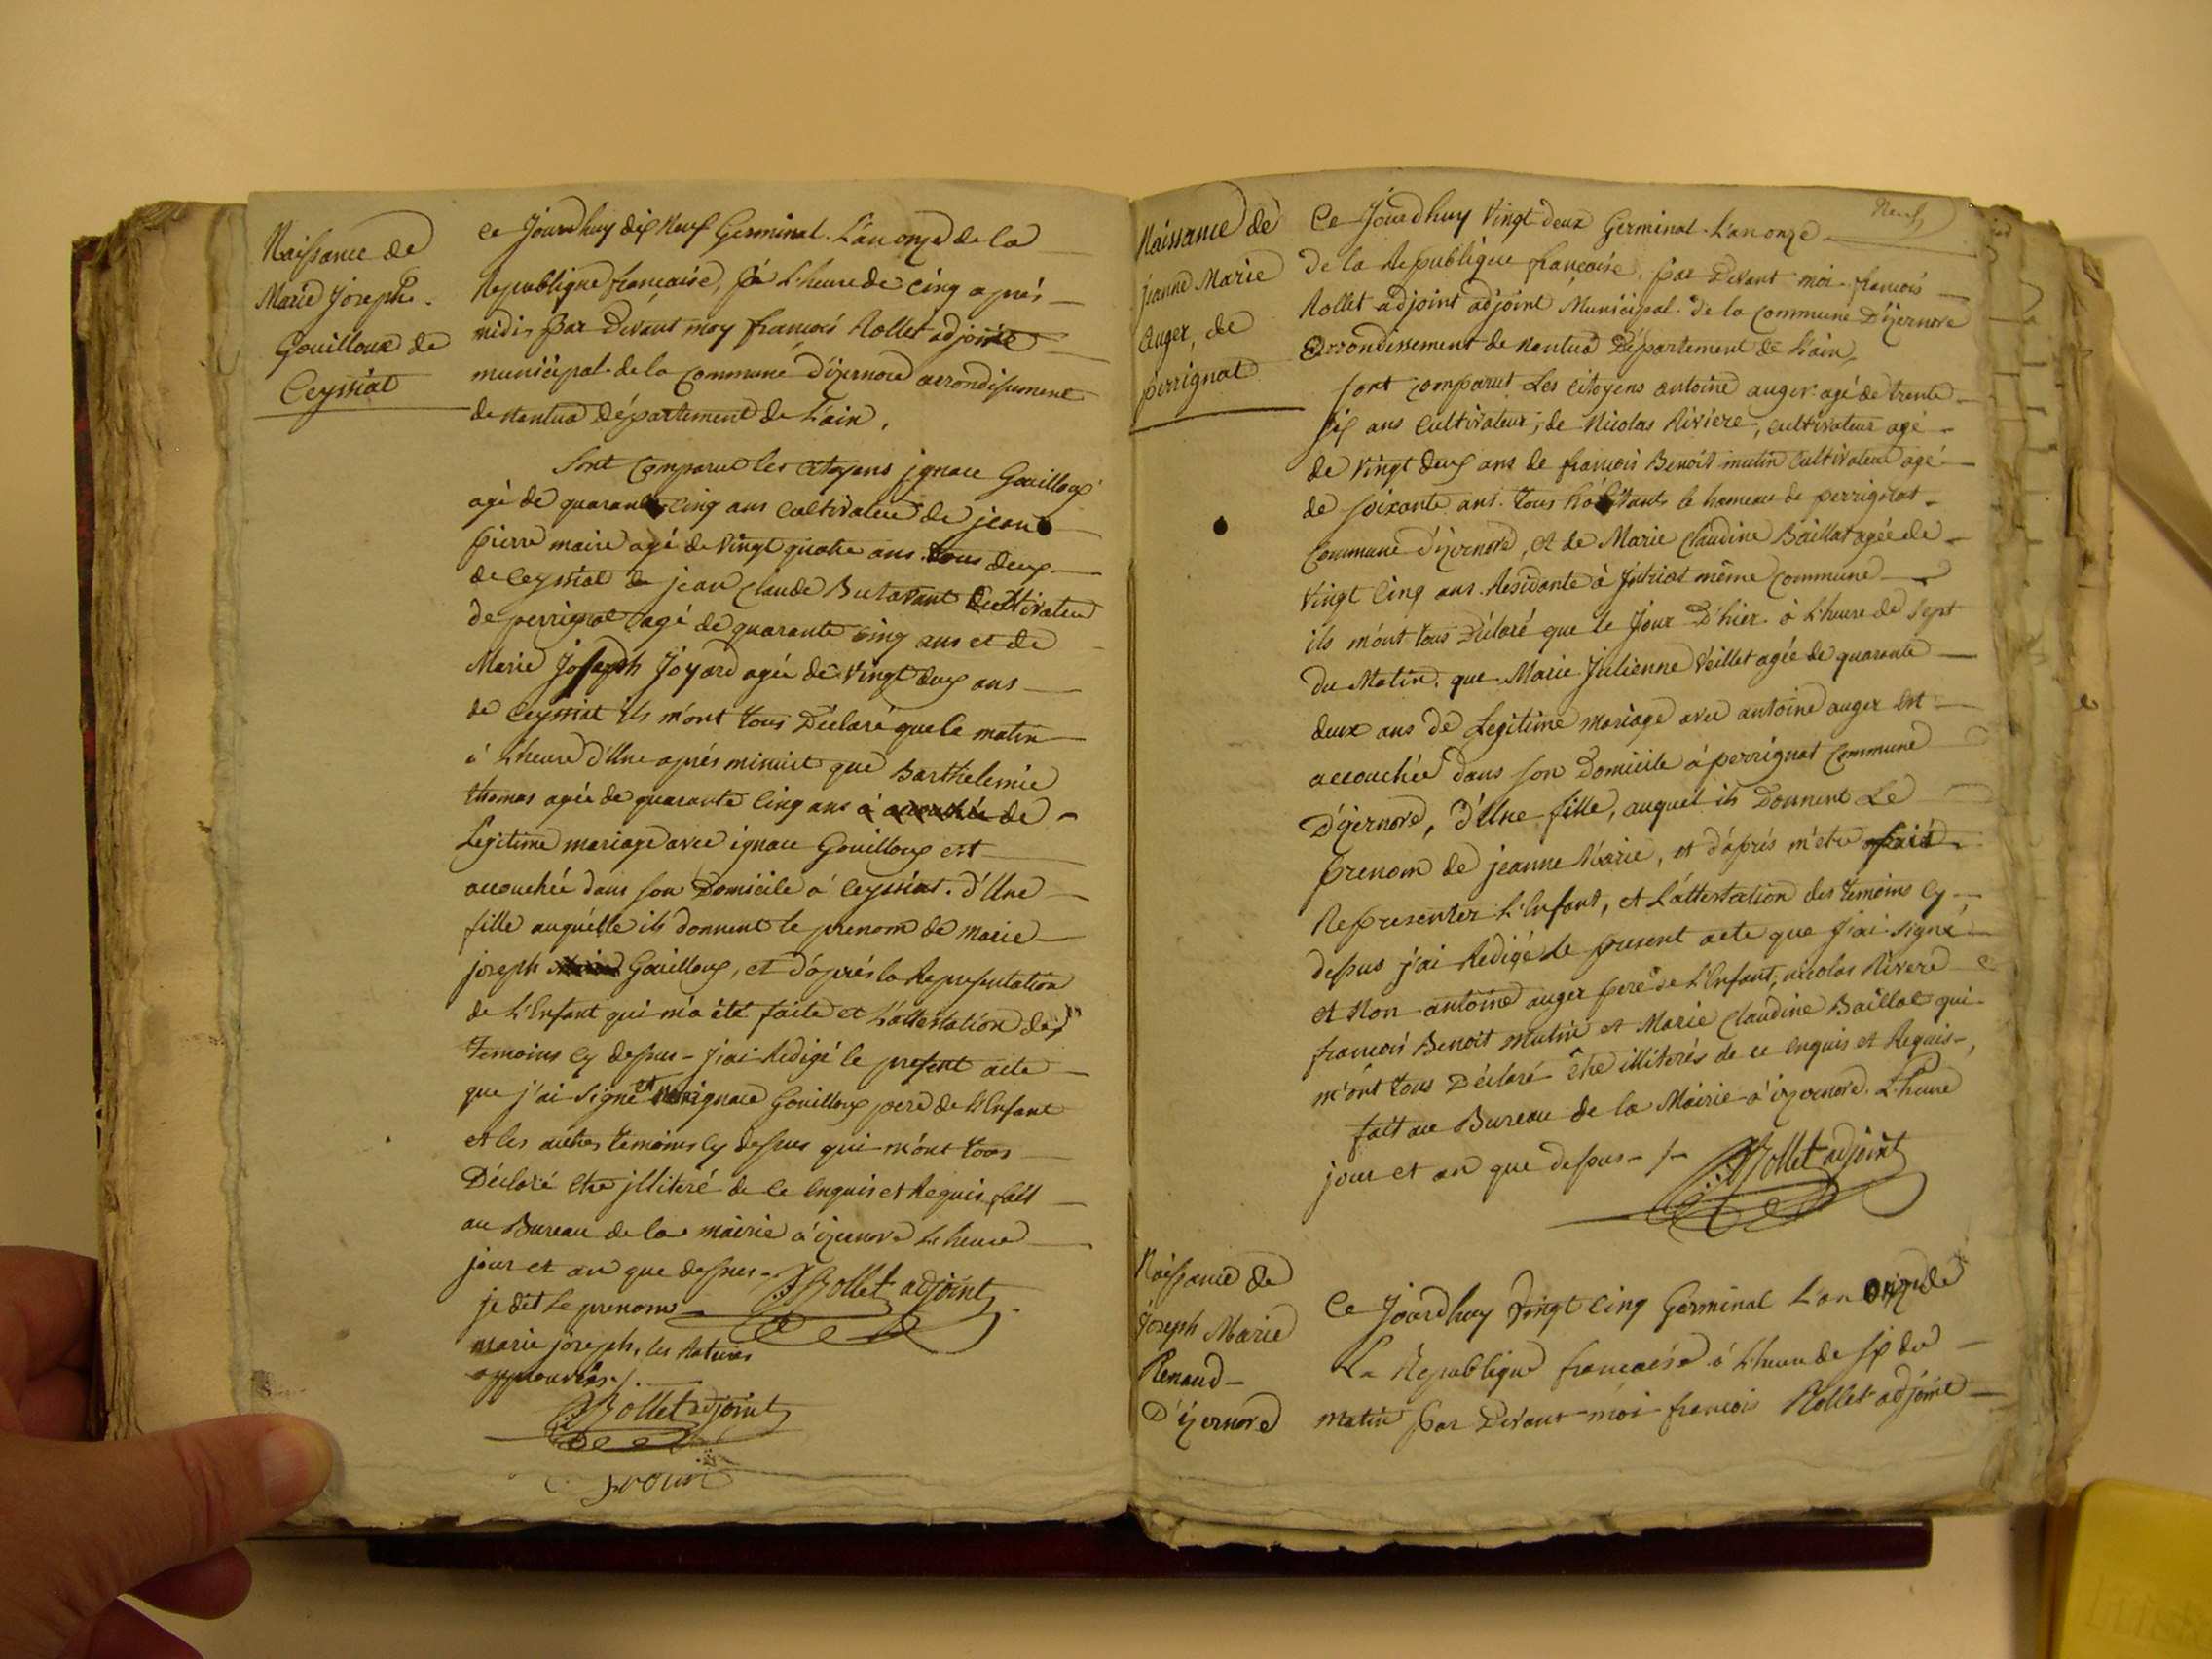 Naissance de
Marie Joseph
Gouilloux de
Ceyssiat
ce Jourdhuy dix Neuf Germinal L'an onze de la
Republique francaise, à L'heure de cinq aprés
midi, par Devant moy francois Rollet adjoint
municipal de la commune d'izernore arrondissement
de nantua département de L'ain,
sont comparut les citoyens ignace Gouilloux
agé de quarante cinq ans cultivateur de jean
pierre maire agé de vingt quatre ans tous deux
de Ceyssiat de jean claude Butavant Cultivateur
de perrignat agé de quarante cinq ans et de
Marie Joseph Joyard agée de vingt deux ans
de Ceyssiat ils m'ont tous Déclaré que le matin
à L'heure d'Une aprés minuit que Barthelemie
thomas agée de quarante cinq ans à accouchée de
Legitime mariage avec ignace Gouilloux est
accouchée dans son Domicile à Ceyssiat. d'Une
fille auquélle ils donnent le prenom de Marie
joseph Gouilloux, et d'aprés la Representation
de L'Enfant qui m'a été faite et L'attestation des
temoins cy dessus j'ai Redigé le present acte
que j'ai signé et non ignace Gouilloux pere de L'Enfant
et les autres temoins cy dessus qui m'ont tous
Déclaré etre jlliteré de ce enquis et Requis, fait
au Bureau de la mairie à izernore L'heure
jour et an que dessus. F Rollet adjoint
je dit le prenom
marie joseph, les Ratures
approuvées ./.
F Rollet adjoint
Neuf
Naissance de
jeanne Marie
Auger, de
perrignat
Ce Jourdhuy Vingt deux Germinal L'an onze
de la Republique francaise, par Devant moi francois
Rollet adjoint adjoint Municipal de la commune D'izernore
Arrondissement de Nantua Département de L'ain,
sont comparut Les citoyens antoine auger agé de trente
six ans Cultivateur, de Nicolas Riviere, cultivateur agé
de vingt deux ans de francois Benoit mutin Cultivateur agé
de soixante ans. tous habitants le hameau de perrignat
commune d'izernore, et de Marie Claudine Baillat agée de
Vingt Cinq ans Residante à Intriat même commune
ils m'ont tous Déclaré que le Jour D'hier à L'heure de sept
du Matin. que Marie Julienne Veillet agée de quarante
deux ans de Legitime mariage avec antoine auger est
accouchée dans son Domicile à perrignat commune
D'izernore, d'Une fille, auquel ils Donnent Le
prenom de jeanne Marie, et d'aprés m'etre fait
Representer L'Enfant, et L'attestation des temoins cy
dessus j'ai Redigé le present acte que j'ai signé
et Non antoine auger pere de L'Enfant, nicolas Rivere
francois Benoit Mutin et Marie Claudine Baillat qui
m'ont tous Déclaré être illiterés de ce enquis et Requis,
fait au Bureau de la Mairie à izernore. L'heure
jour et an que dessus ./. F Rollet adjoint
Naissance de
Joseph Marie
Renaud
D'izernore
Ce Jourdhuy Vingt Cinq Germinal L'an onze de
La Republique francaise à L'heure de six du
matin par Devant moi francois Rollet adjoint